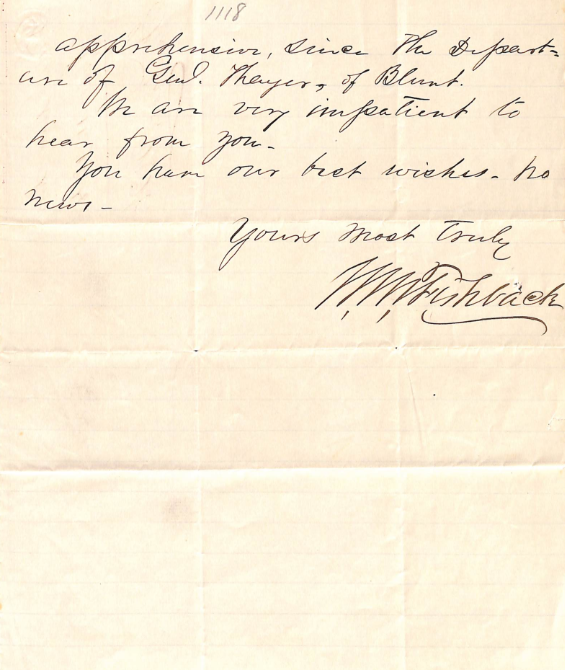 1118
apprehensive, since the Depart=
ure of Genl. Thayer, of Blunt.
We are very impatient to
hear from you-
You have our best wishes- No
news-
Yours most truly
W.M. Fishback